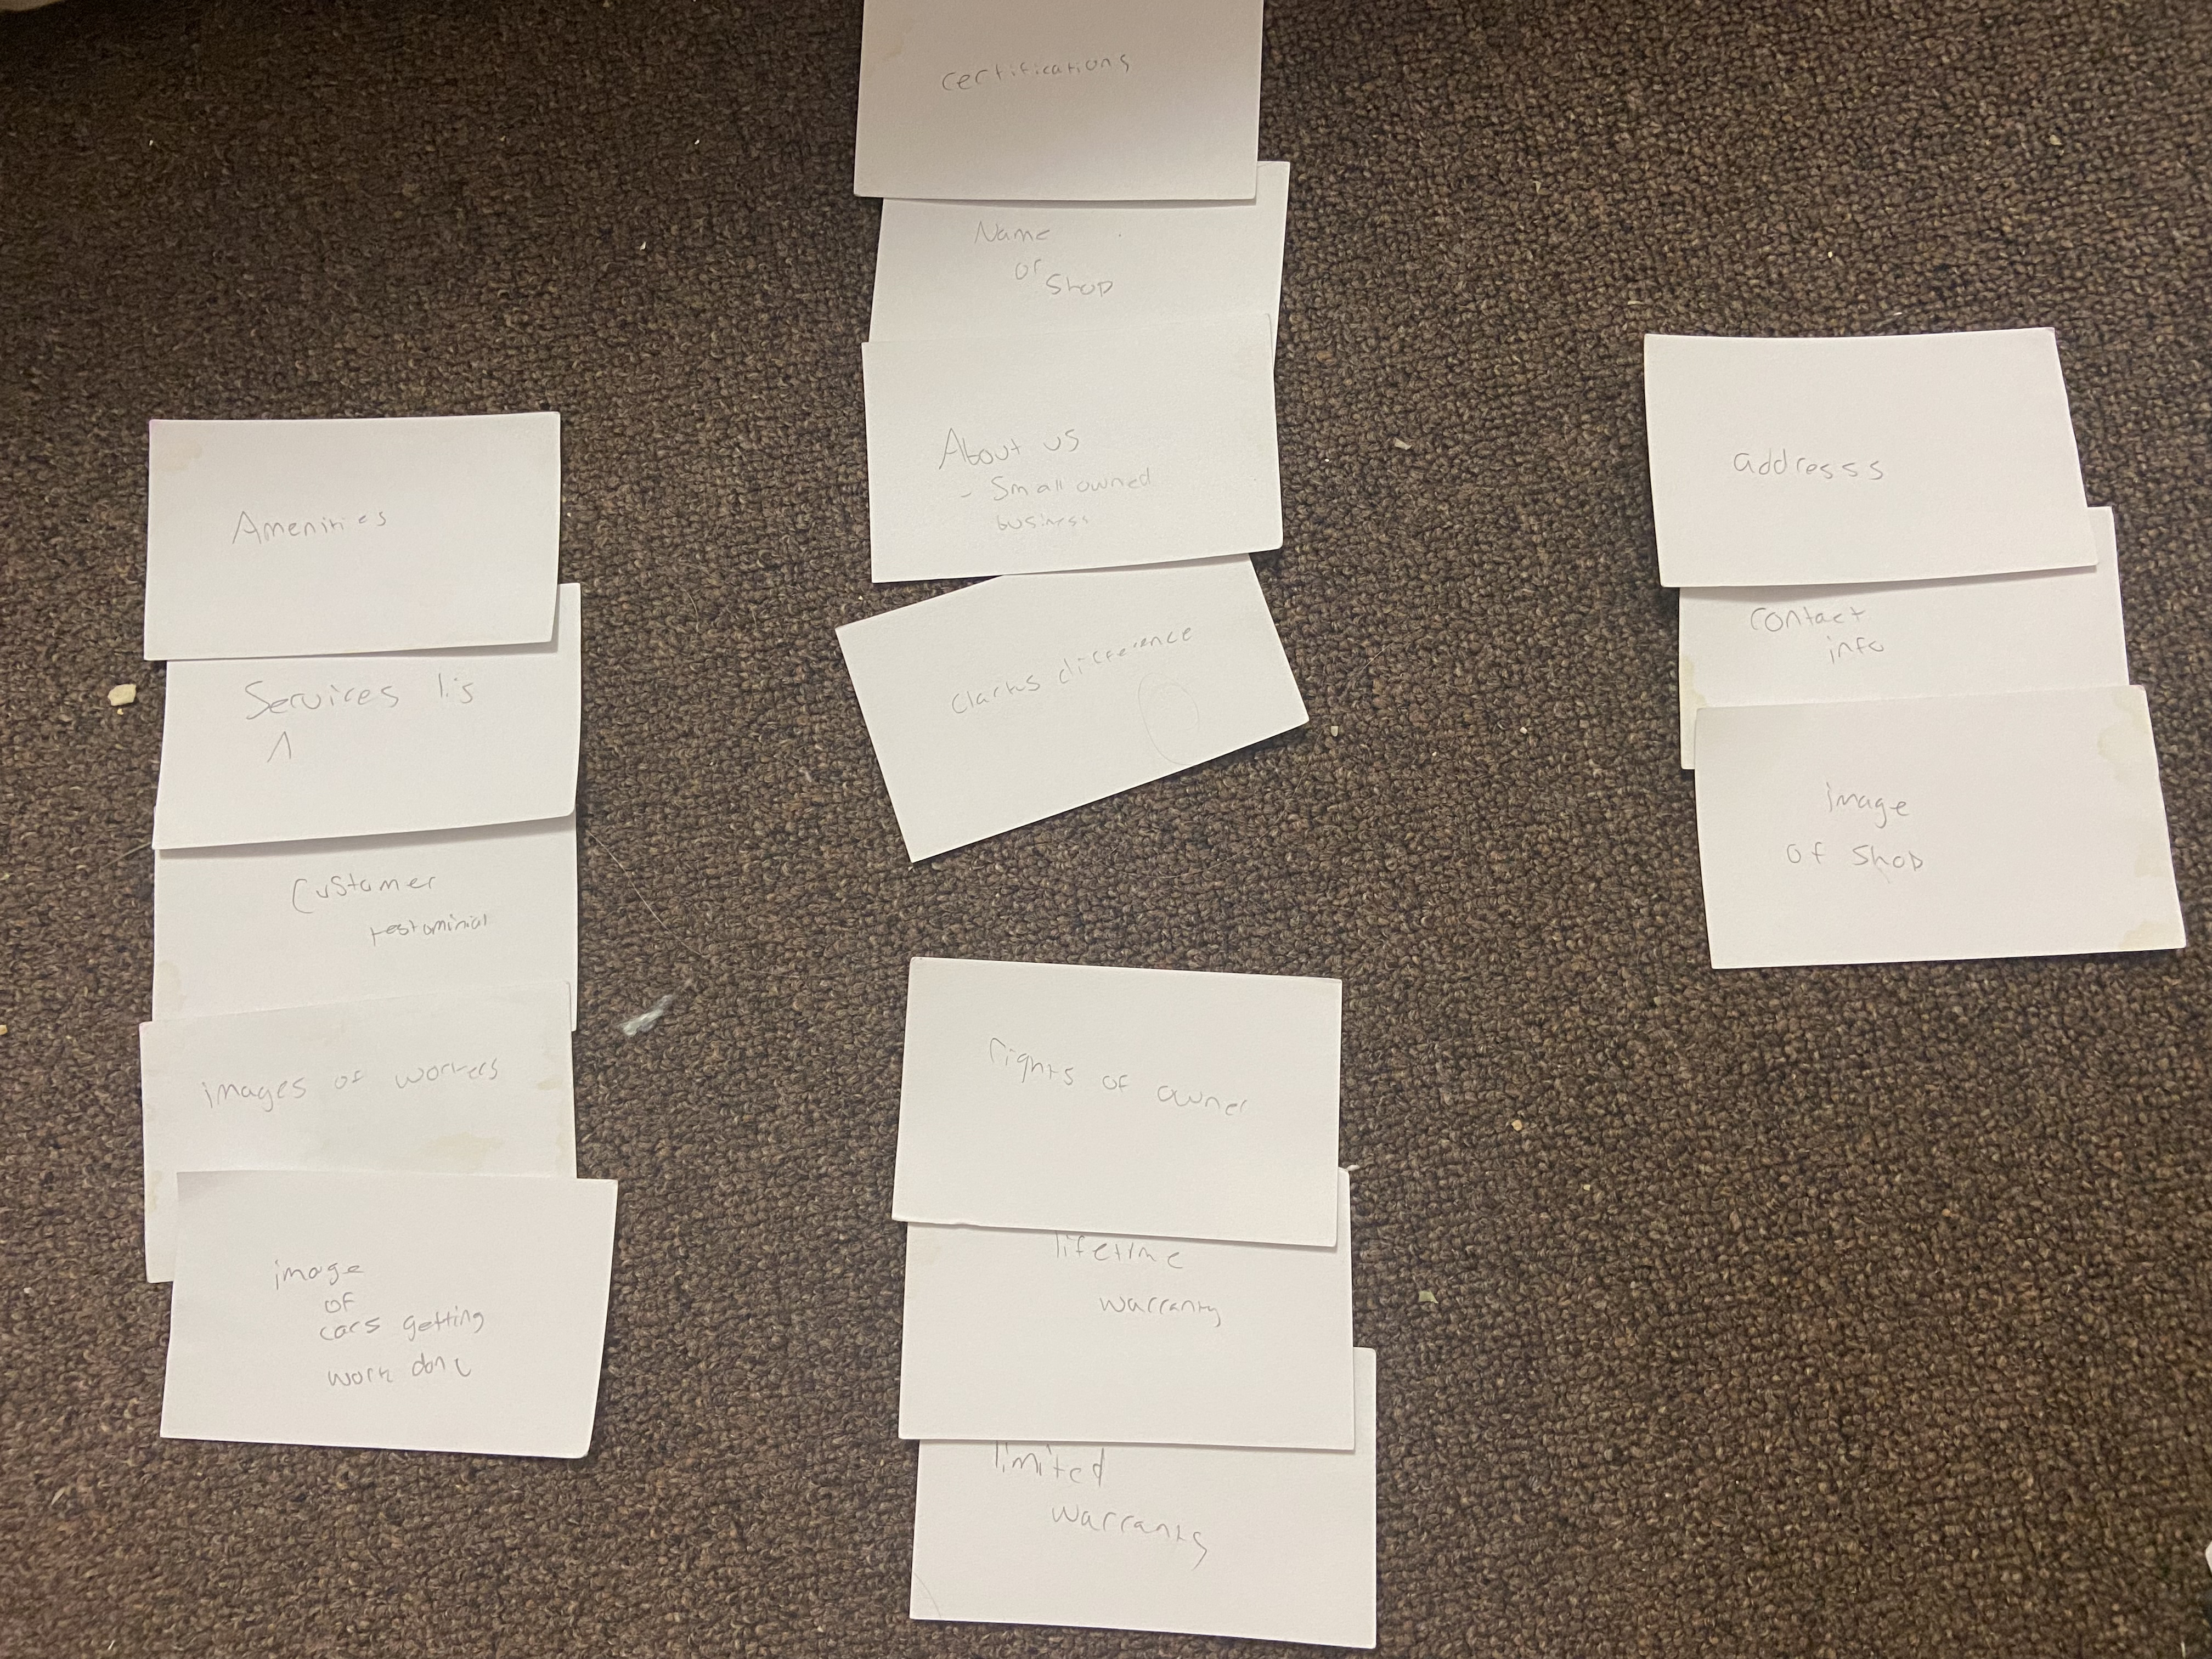 Amenities
Services lis
Customer
testominial
images of workers
image
of
cars getting
work done
certifications
Name
of
Shop
About us
- Small owned
business
Clarks difference
rights of owner
lifetime
warranty
limited
warranty
addresss
contact
info
image
of shop